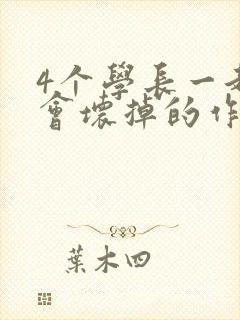 4个學長一起
會壞掉的作
葉木四